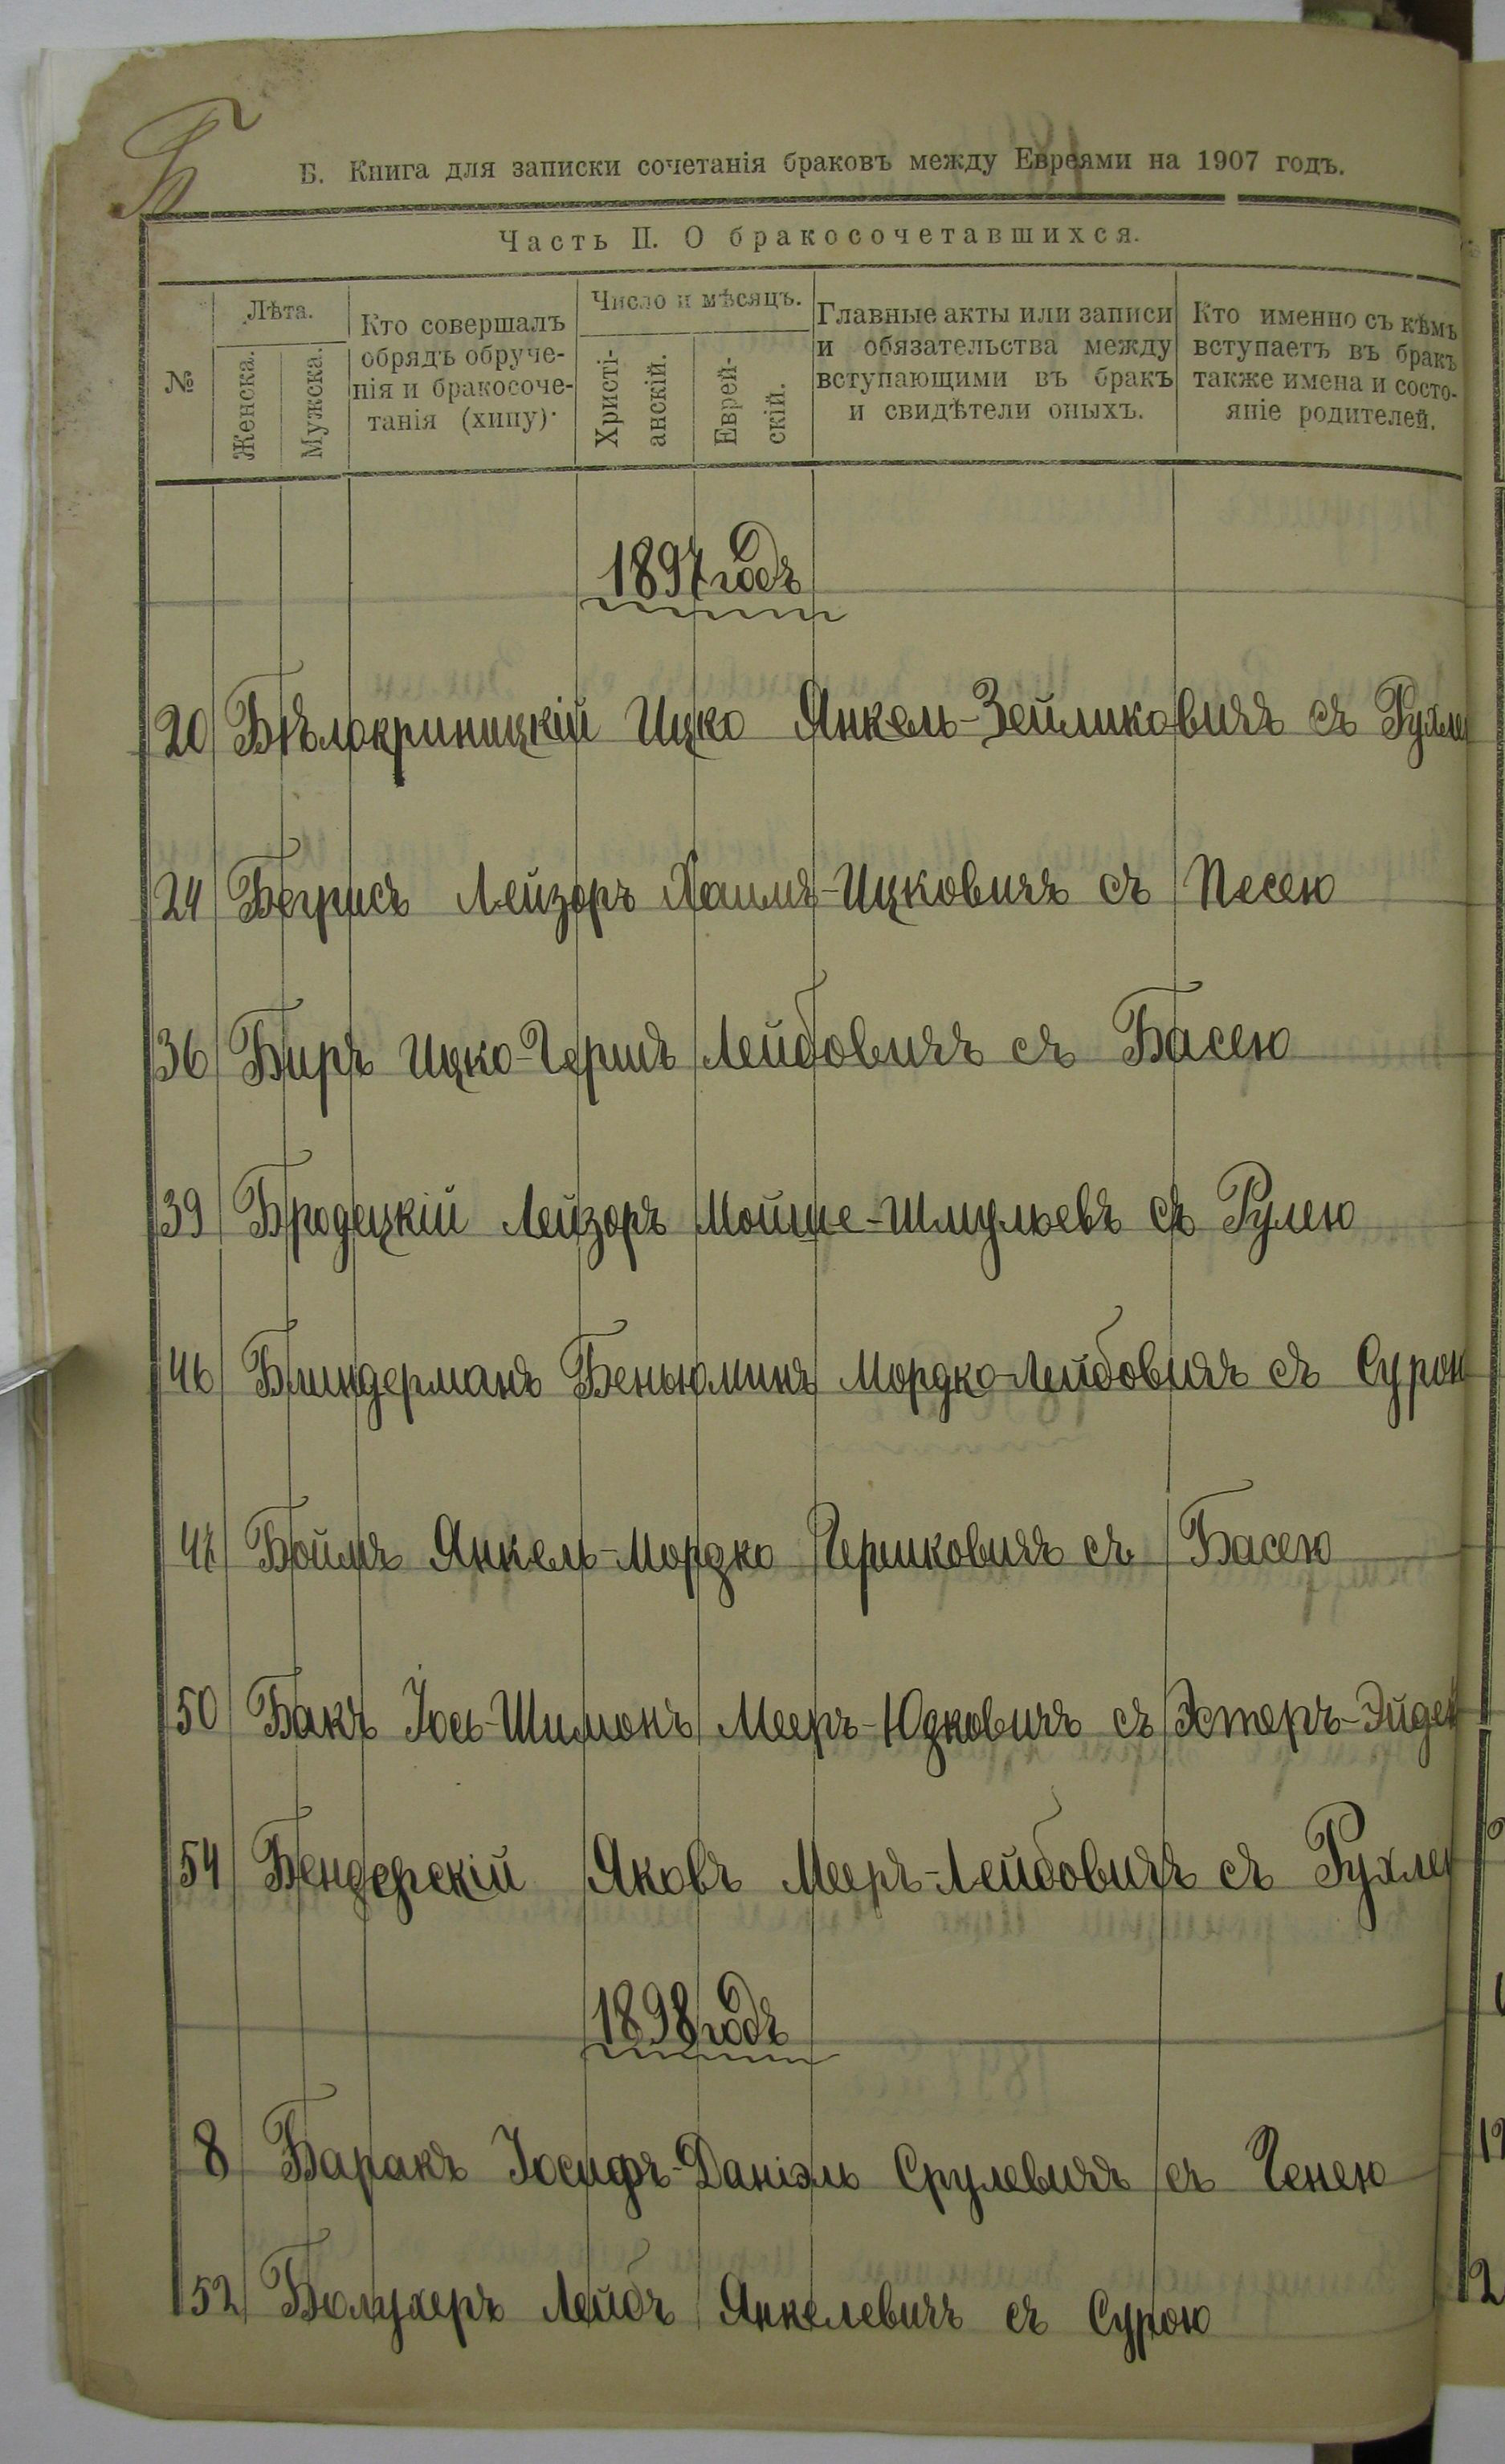 Б
Б. Книга для записки сочетанія браковъ между Евреями на 1907 годъ.
Часть II. О бракосочетавшихся.
№
Лѣта.
Женска.
Мужска.
Кто совершалъ
обрядъ обруче-
нія и бракосоче-
танія (хипу).
Число и мѣсяцъ.
Христі-
анскій.
Еврей-
скій.
Главные акты или записи
и обязательства между
вступающими въ бракъ
и свидѣтели оныхъ.
Кто именно съ кѣмъ
вступаетъ въ бракъ
также имена и состо-
яніе родителей.
1897 годъ
20 Бѣлокриницкій Ицко Янкель-Зейликовичъ съ Рухлею
24 Бегрисъ Лейзоръ Хаимъ-Ицковичъ съ Песею
36 Биръ Ицко-Гершъ Лейбовичъ съ Басею
39 Бродецкій Лейзоръ Мойше-Шмулъевъ съ Рулею
46 Блиндерманъ Беньюминъ Мордко-Лейбовичъ съ Сурою
47 Боймъ Янкель-Мордко Гершковичъ съ Басею
50 Бакъ Іось-Шимонъ Мееръ-Юдковичъ съ Эстеръ-Эйдею
54 Бендерскій Яковъ Мееръ-Лейбовичъ съ Рухлею
1898 годъ
8 Баракъ Іосифъ-Даніэль Срулевичъ съ Генею
52 Болухеръ Лейбъ Янкелевичъ съ Сурою